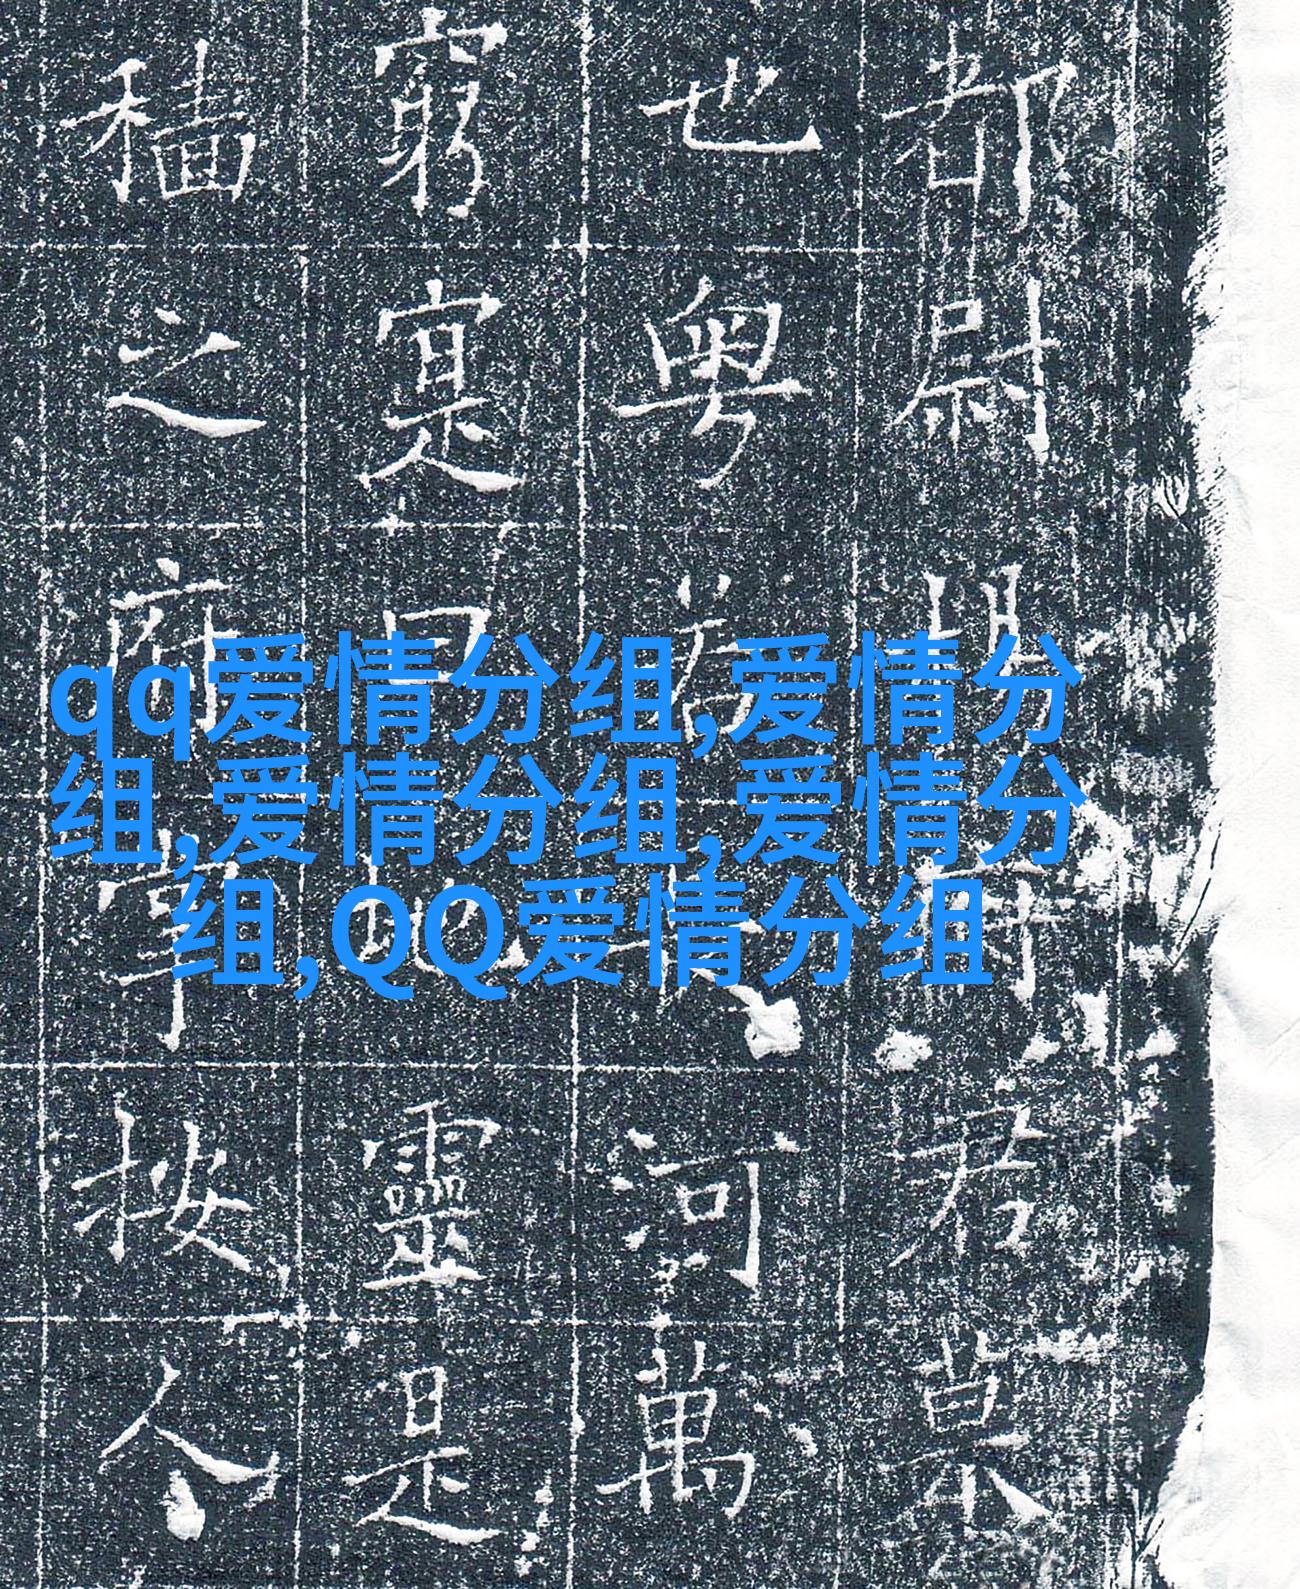 都尉君
也粤若河萬
窮寔曰地靈是
穡之府掌按人
qq爱情分组,爱情分
组,爱情分组,爱情分
组,QQ爱情分组